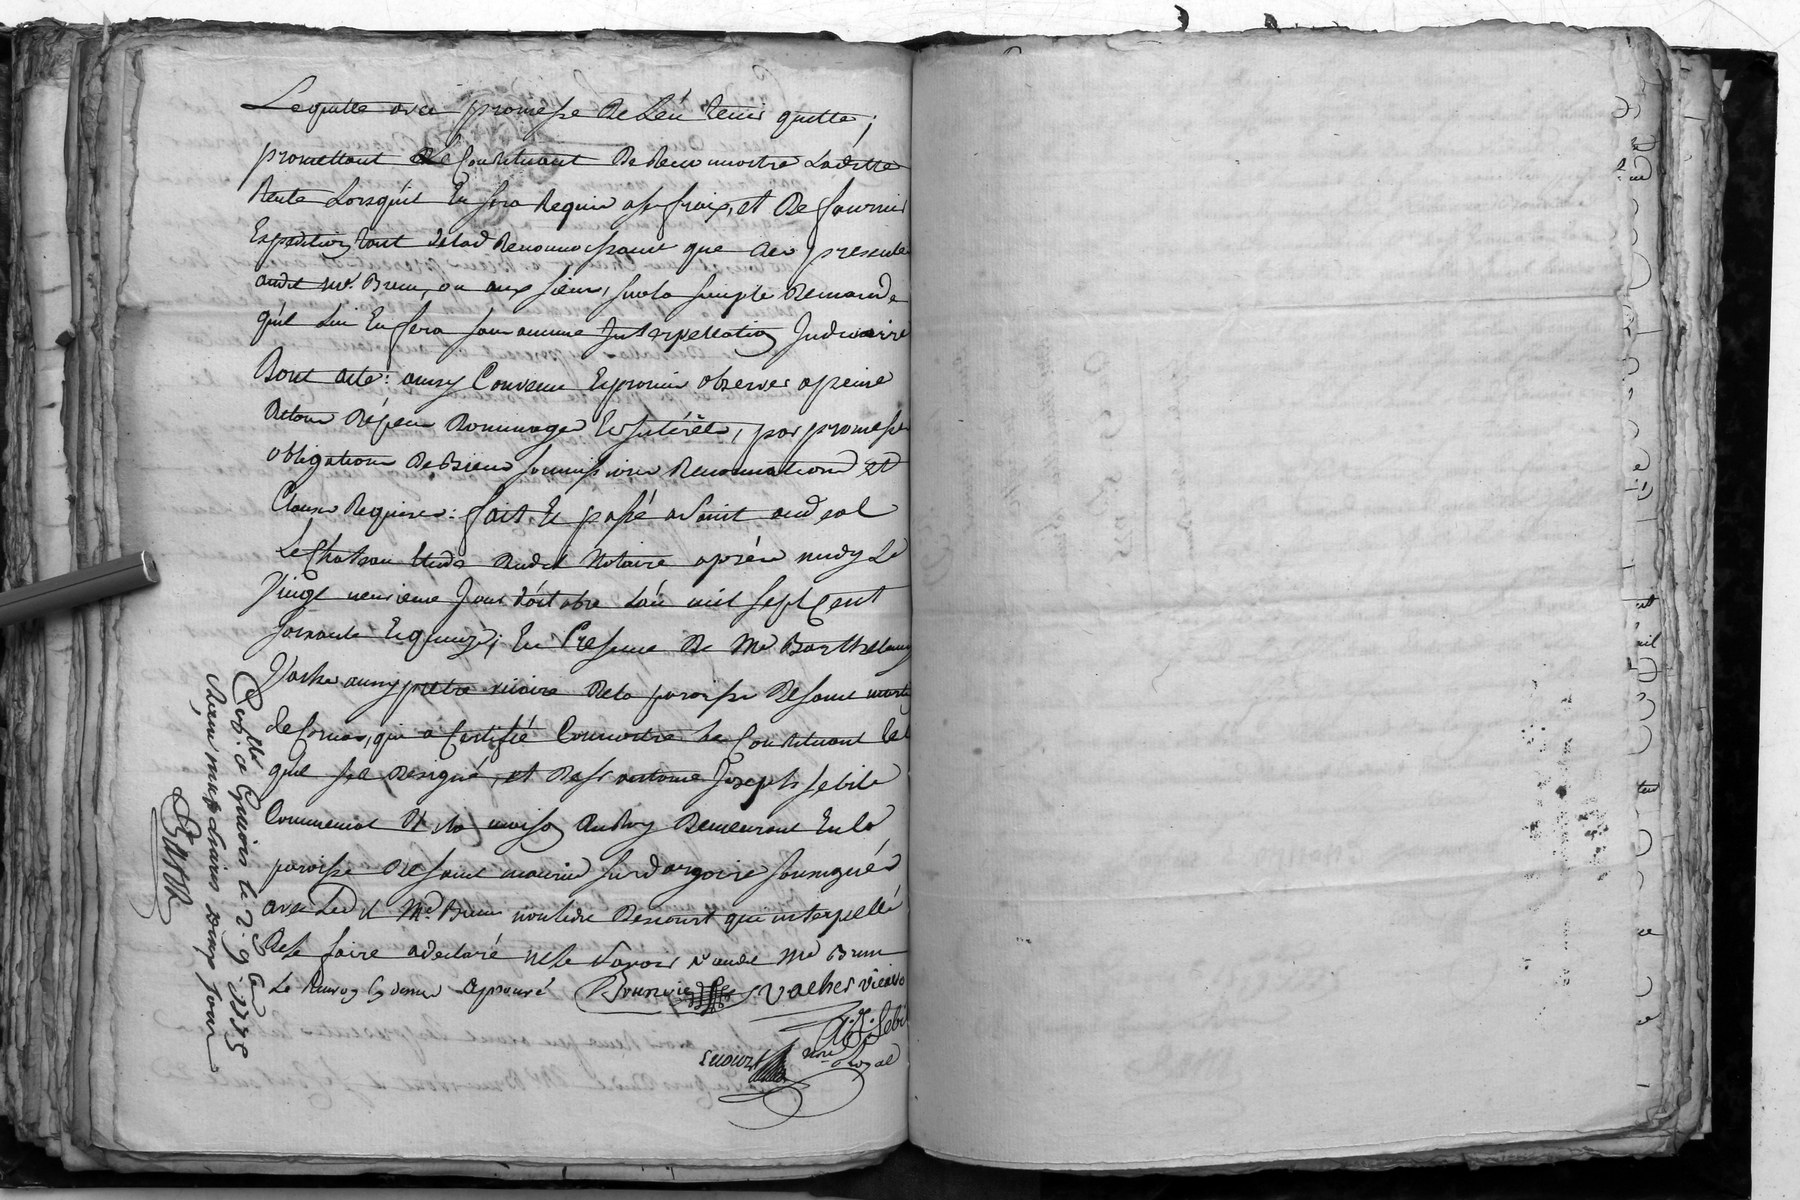 Lequitte avec promesse de l'en tenir quitte;
promettant le Constituant de reconnoitre Laditte
Rente Lorsqu'il En sera Requis a ses fraix, et de fournir
Expedition tant de lad Reconnoissance que des presentes
audit Mr. Brun, ou aux siens, sur la simple demande
qu'il Lui En sera sans aucune Interpellation Judiciaire
Dont acte: ainsy Convenu Et promis observer a peine
de tous Dépens Dommages Et Intérêts, par promesse
obligations de Biens soumissions Renonciations et
Clauses Requises: fait Et passé a saint andeol
Le Chateau Etude dudit Notaire après midy Le
Vingt neuvieme Jour d'octobre L'an mil sept Cent
soixante Et quinze; En Presence de Me Barthelemy
Vacher aussy prêtre vicaire de la paroisse de saint martin
de Cornas, qui a Certifié Connoitre le Constituant tel
qu'il s'est designé, et de sr antoine Joseph sebile
Commencal de la maison du Roy demeurant En la
paroisse de saint maurice sur dargoire soussignés
avec Led Me Brun non ledit Descourt qui interpellé
de le faire a declaré ne le sçavoir
Brun vacher vicaire
A. J. Sebi
nore Royal
Contllé a Givors le 9bre 1775